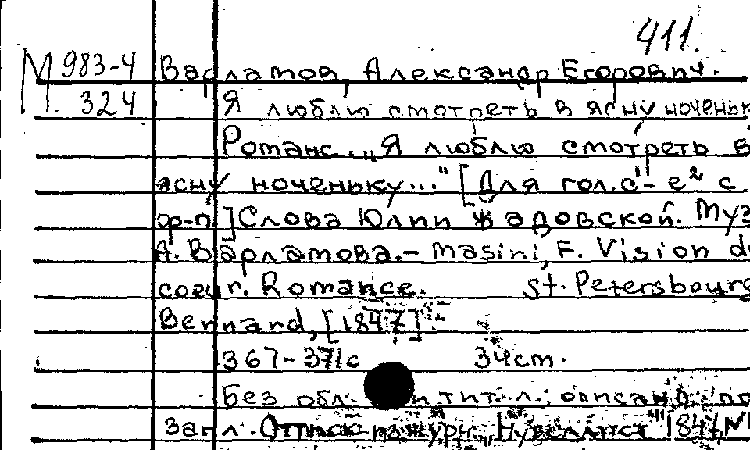 411.
М 983-4 Варламов, Александр Егорович.
М. 324 Я люблю смотреть в ясну ноченьк
Романс „Я люблю смотреть в
ясну ноченьку..." [Для гол. с¹- е² с
ф-п.] Слова Юлии Жадовской. Муз
А. Варламова.- Masini, F. Vision du
coeur. Romance. St. Petersbourg
Bernard, [1847]
367-371с 34 cm.
Без обл. и тит. л.; описано по
загл. Оттиск из журн. „Нувеллист" 1847, №